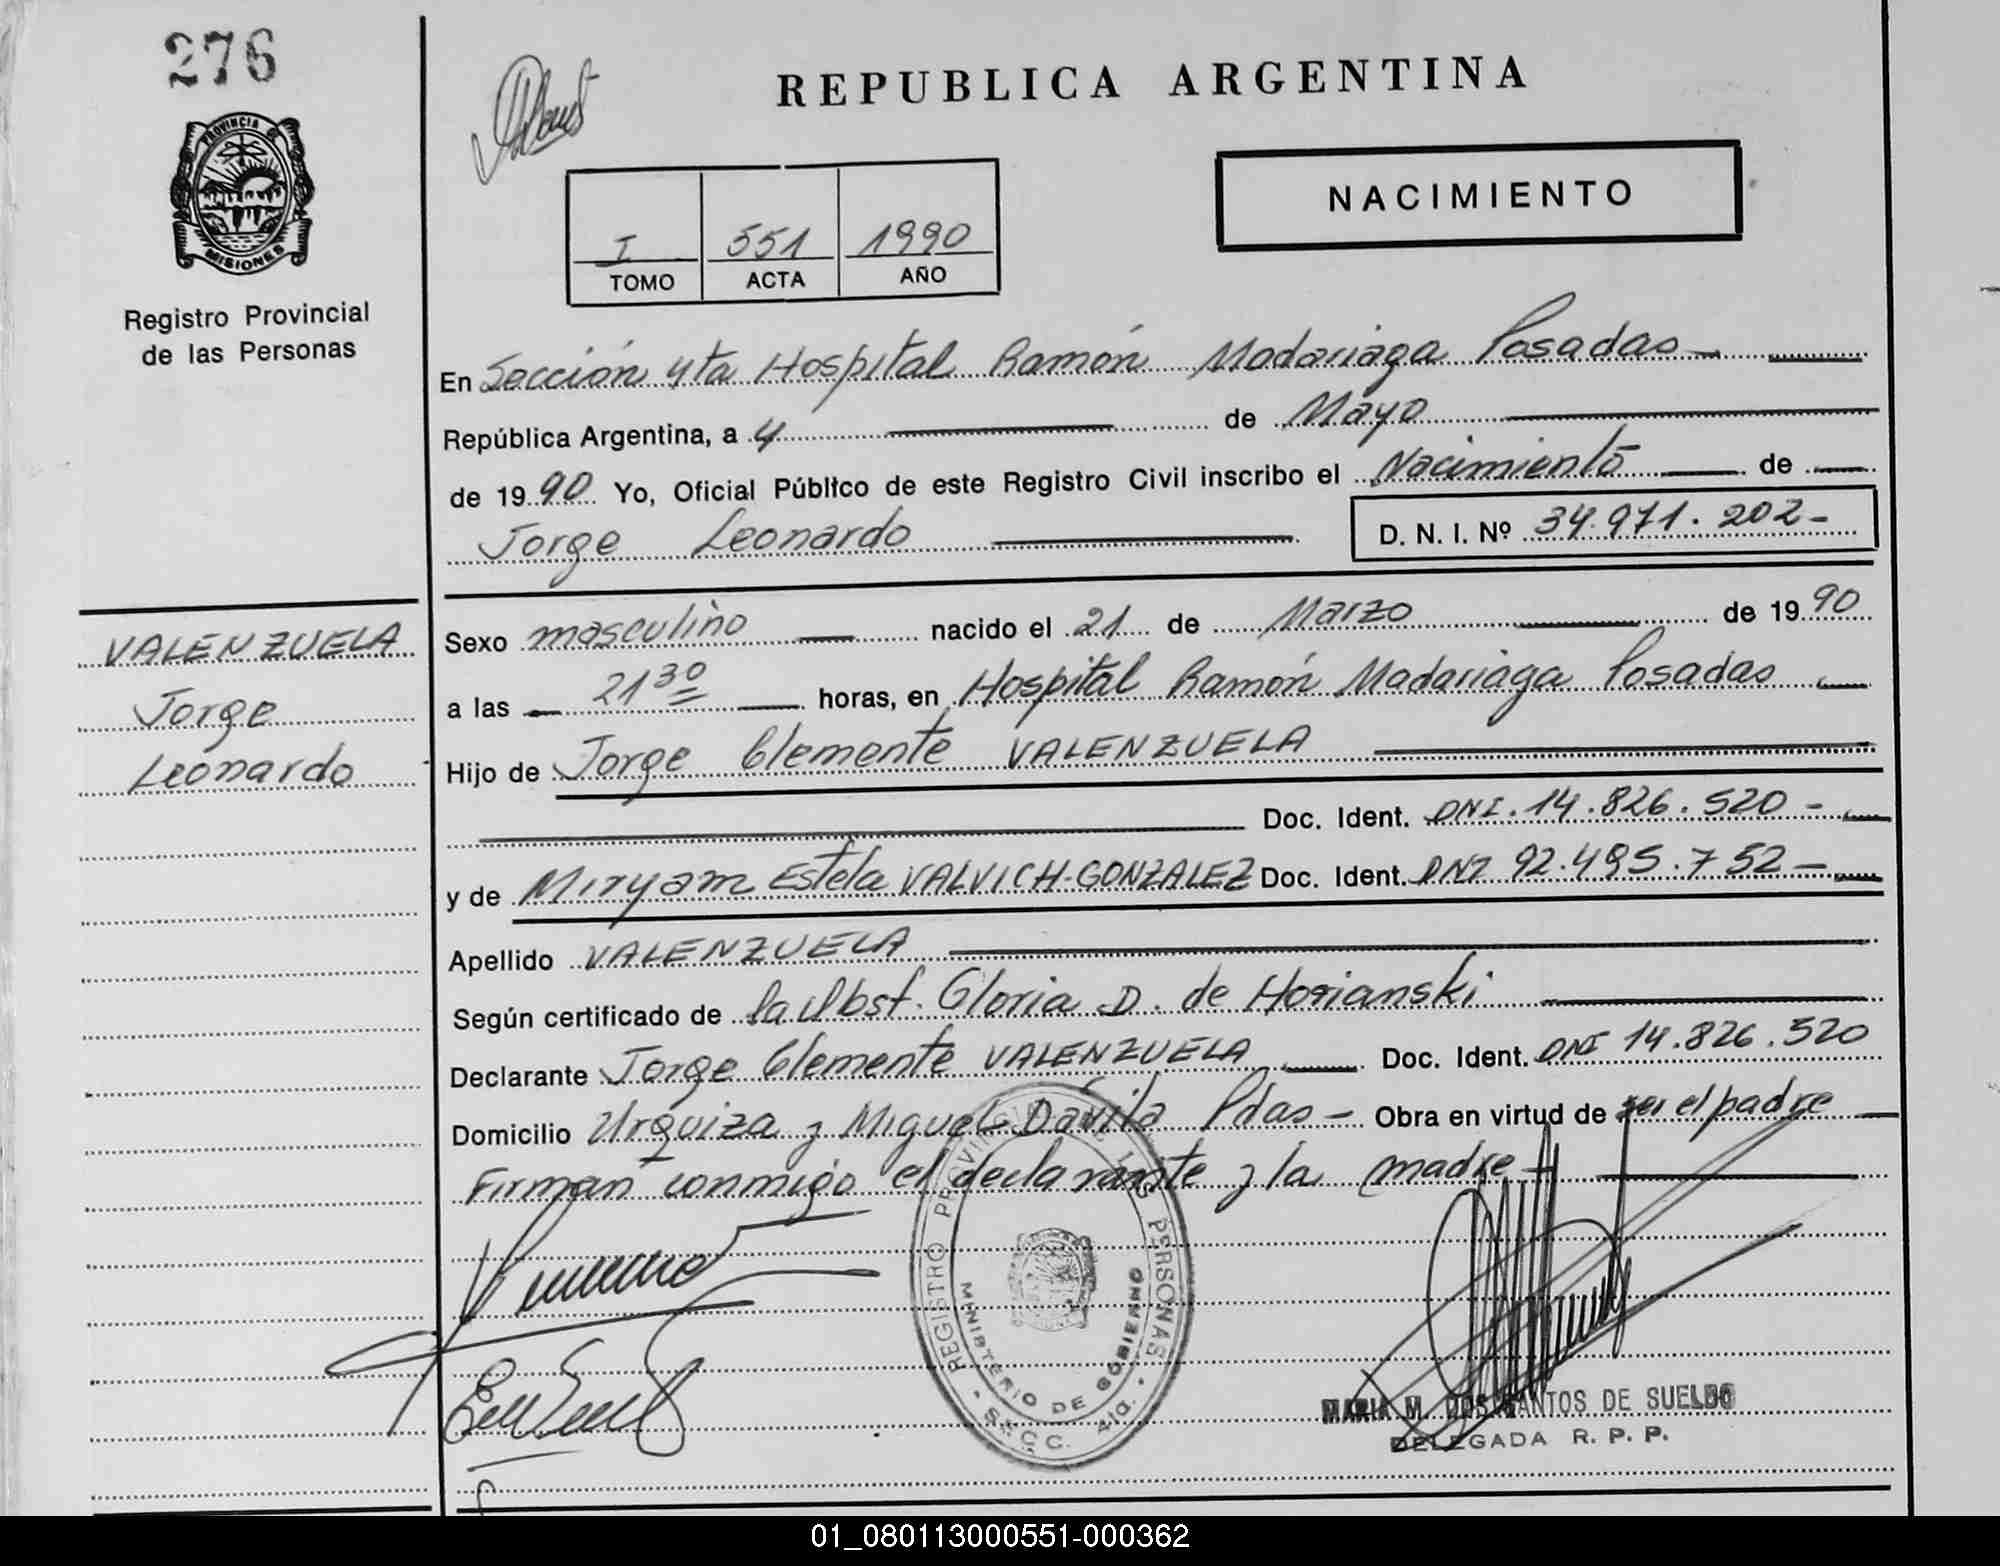 276
REPUBLICA ARGENTINA
PROVINCIA DE
MISIONES
Registro Provincial
de las Personas
NACIMIENTO
I 551 1990
TOMO ACTA AÑO
En Sección 4ta Hospital Ramón Madariaga Posadas
República Argentina, a 4 de Mayo
de 1990 Yo, Oficial Público de este Registro Civil inscribo el Nacimiento de
Jorge Leonardo D. N. I. Nº 34.971.202-
VALENZUELA
Jorge
Leonardo
Sexo masculino nacido el 21 de Marzo de 1990
a las 21 30 horas, en Hospital Ramón Madariaga Posadas
Hijo de Jorge Clemente VALENZUELA
Doc. Ident. DNI. 14.826.520-
y de Miryam Estela VALVICH-GONZALEZ Doc. Ident. DNI 92.485.752-
Apellido VALENZUELA
Según certificado de la Obst. Gloria D. de Horianski
Declarante Jorge Clemente VALENZUELA Doc. Ident. DNI 14.826.520
Domicilio Urquiza y Miguel Dávila Pdas- Obra en virtud de ser el padre
Firman conmigo el declarante y la madre-
REGISTRO PROVINCIAL DE LAS PERSONAS
MINISTERIO DE GOBIERNO
SECC. 4ta.
MARIA M. DOS SANTOS DE SUELDO
DELEGADA R. P. P.
01_080113000551-000362